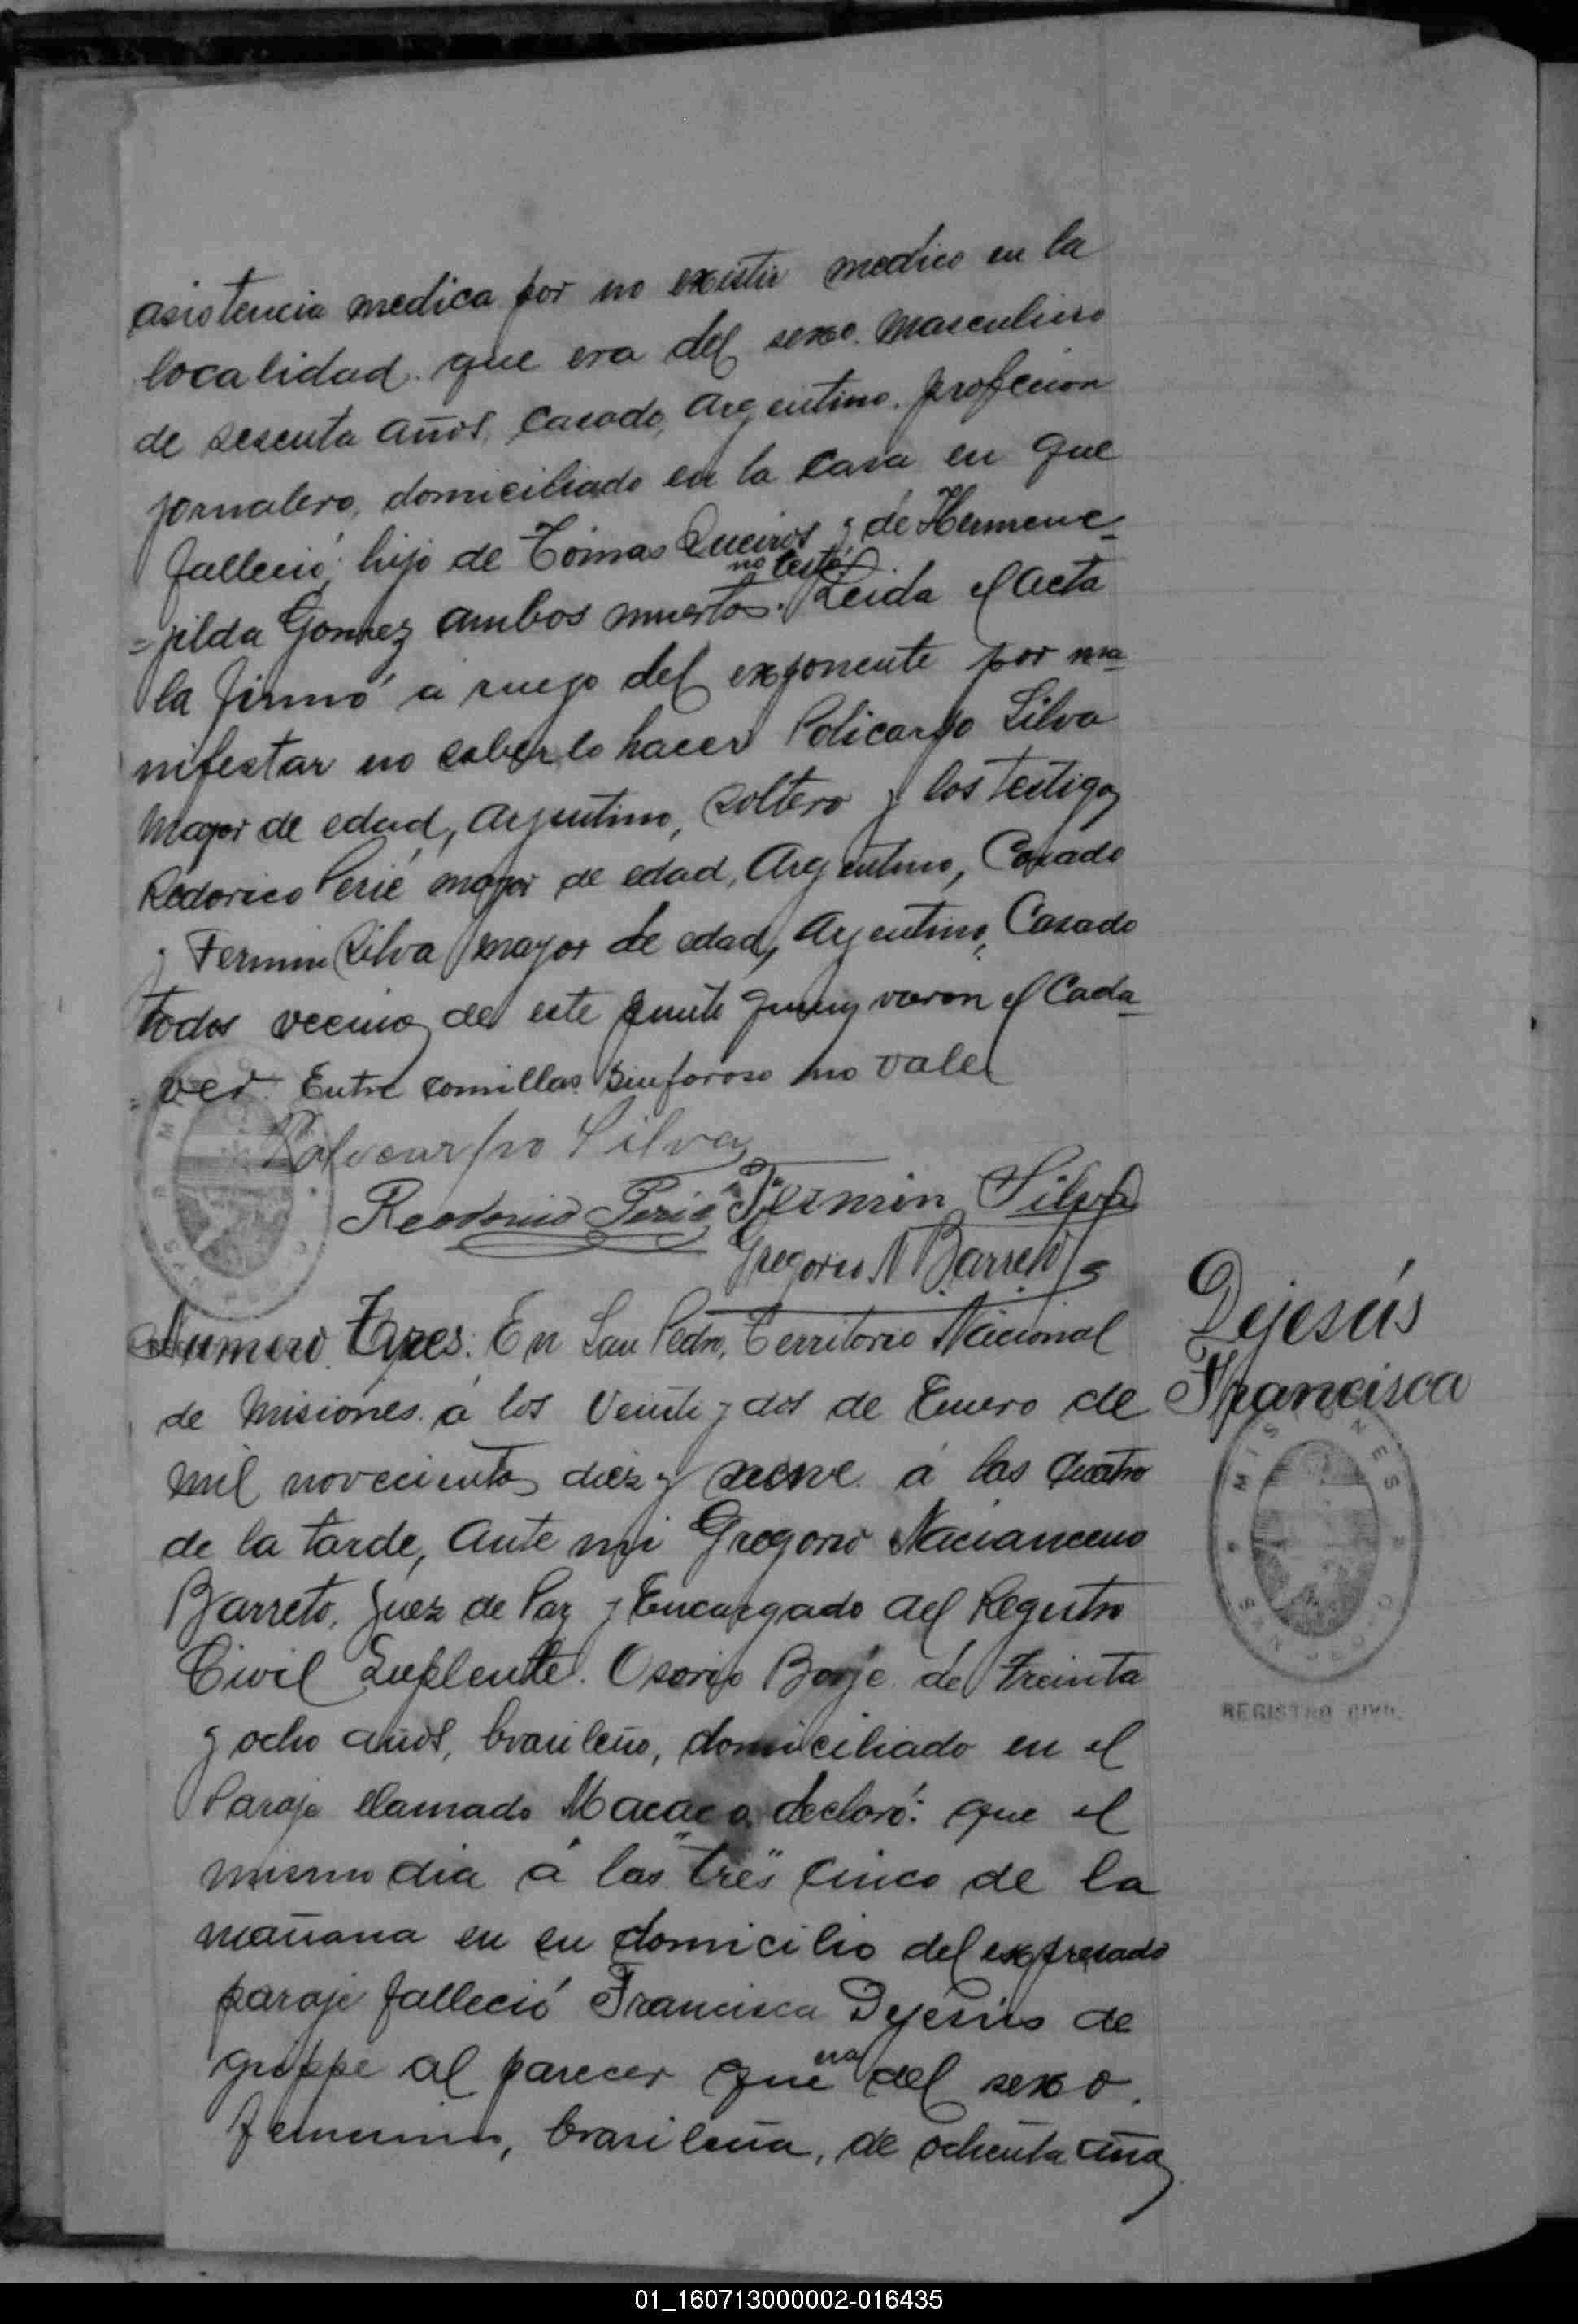 asistencia medica por no existir medico en la
localidad. que era del sexo. masculino
de sesenta años, casado, Argentino. profecion
jornalero, domiciliado en la casa en que
falleció, hijo de Tómas Queiros y de Hermene-
no testó
=jilda Gomez ambos muertos. Leida el acta
la firmó a ruego del exponente por ma-
nifestar no saberlo hacer Policarpo Silva
mayor de edad, argentino, soltero y los testigos
Redorico Perié mayor de edad, Argentino, Casado
y Fermin Silva mayor de edad, Argentino, Casado
todos vecinos de este punto quienes vieron el Cada-
=ver. Entre comillas Sinforoso no vale
Policarpo Silva
Perié Fermin Silva
Gregorio N Barreto
Numero Tres: En San Pedro, Territorio Nacional
de Misiones. á los Veinte y dos de Enero de
mil novecientos diez y nueve á las cuatro
de la tarde, Ante mi Gregorio Nacianceno
Barreto, Juez de Paz y Encargado del Registro
Civil Suplente. Osorio Borje de treinta
y ocho años, brasileño, domiciliado en el
Paraje llamado Macaco, declaró: que el
mismo dia á las "tres" cinco de la
mañana en su domicilio del expresado
paraje falleció Francisca Dejesús de
grippe al parecer que era del sexo.
femenino, brasileña, de ochenta años
Dejesús
Francisca
MISIONES
REGISTRO CIVIL
01_160713000002-016435